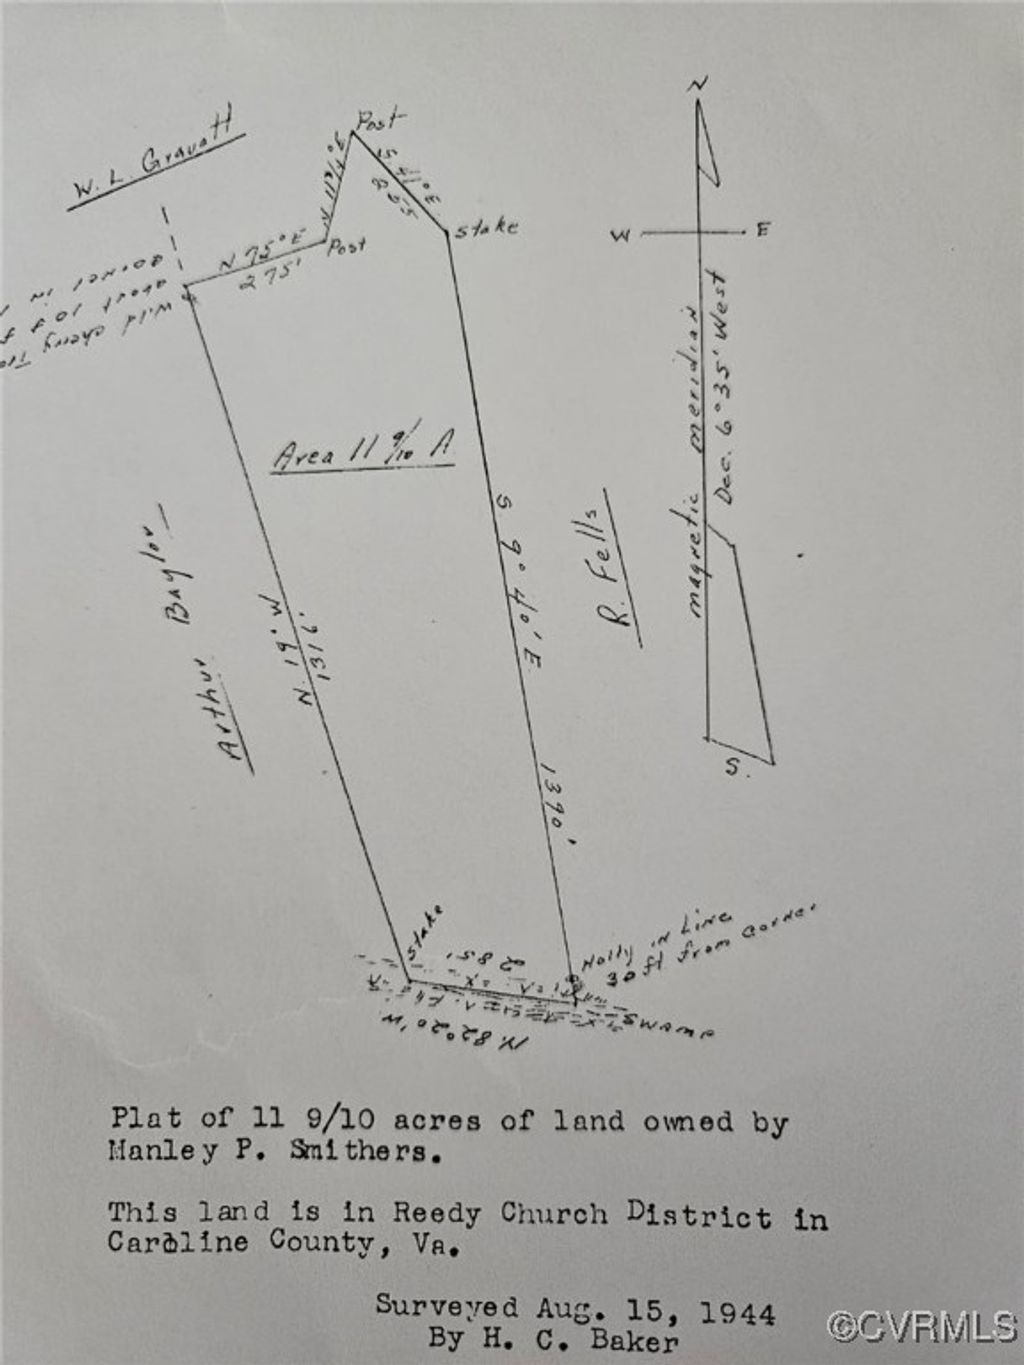 N
W. L. Gravatt
Post
S 41° E
265
N 11 3/4° E
Stake
W E
N 75° E
275'
Post
corner in
about 10 ft
Wild cherry
magnetic meridian
Dec. 6° 35' West
Area 11 9/10 A
S 9° 40' E
1390'
R. Fells
Arthur Baylor
N. 19° W
1316'
S.
Stake
285'
Holly in Line
30 ft from corner
N. 82° 20' W.
Swamp
Plat of 11 9/10 acres of land owned by
Manley P. Smithers.
This land is in Reedy Church District in
Caroline County, Va.
Surveyed Aug. 15, 1944
By H. C. Baker
©CVRMLS